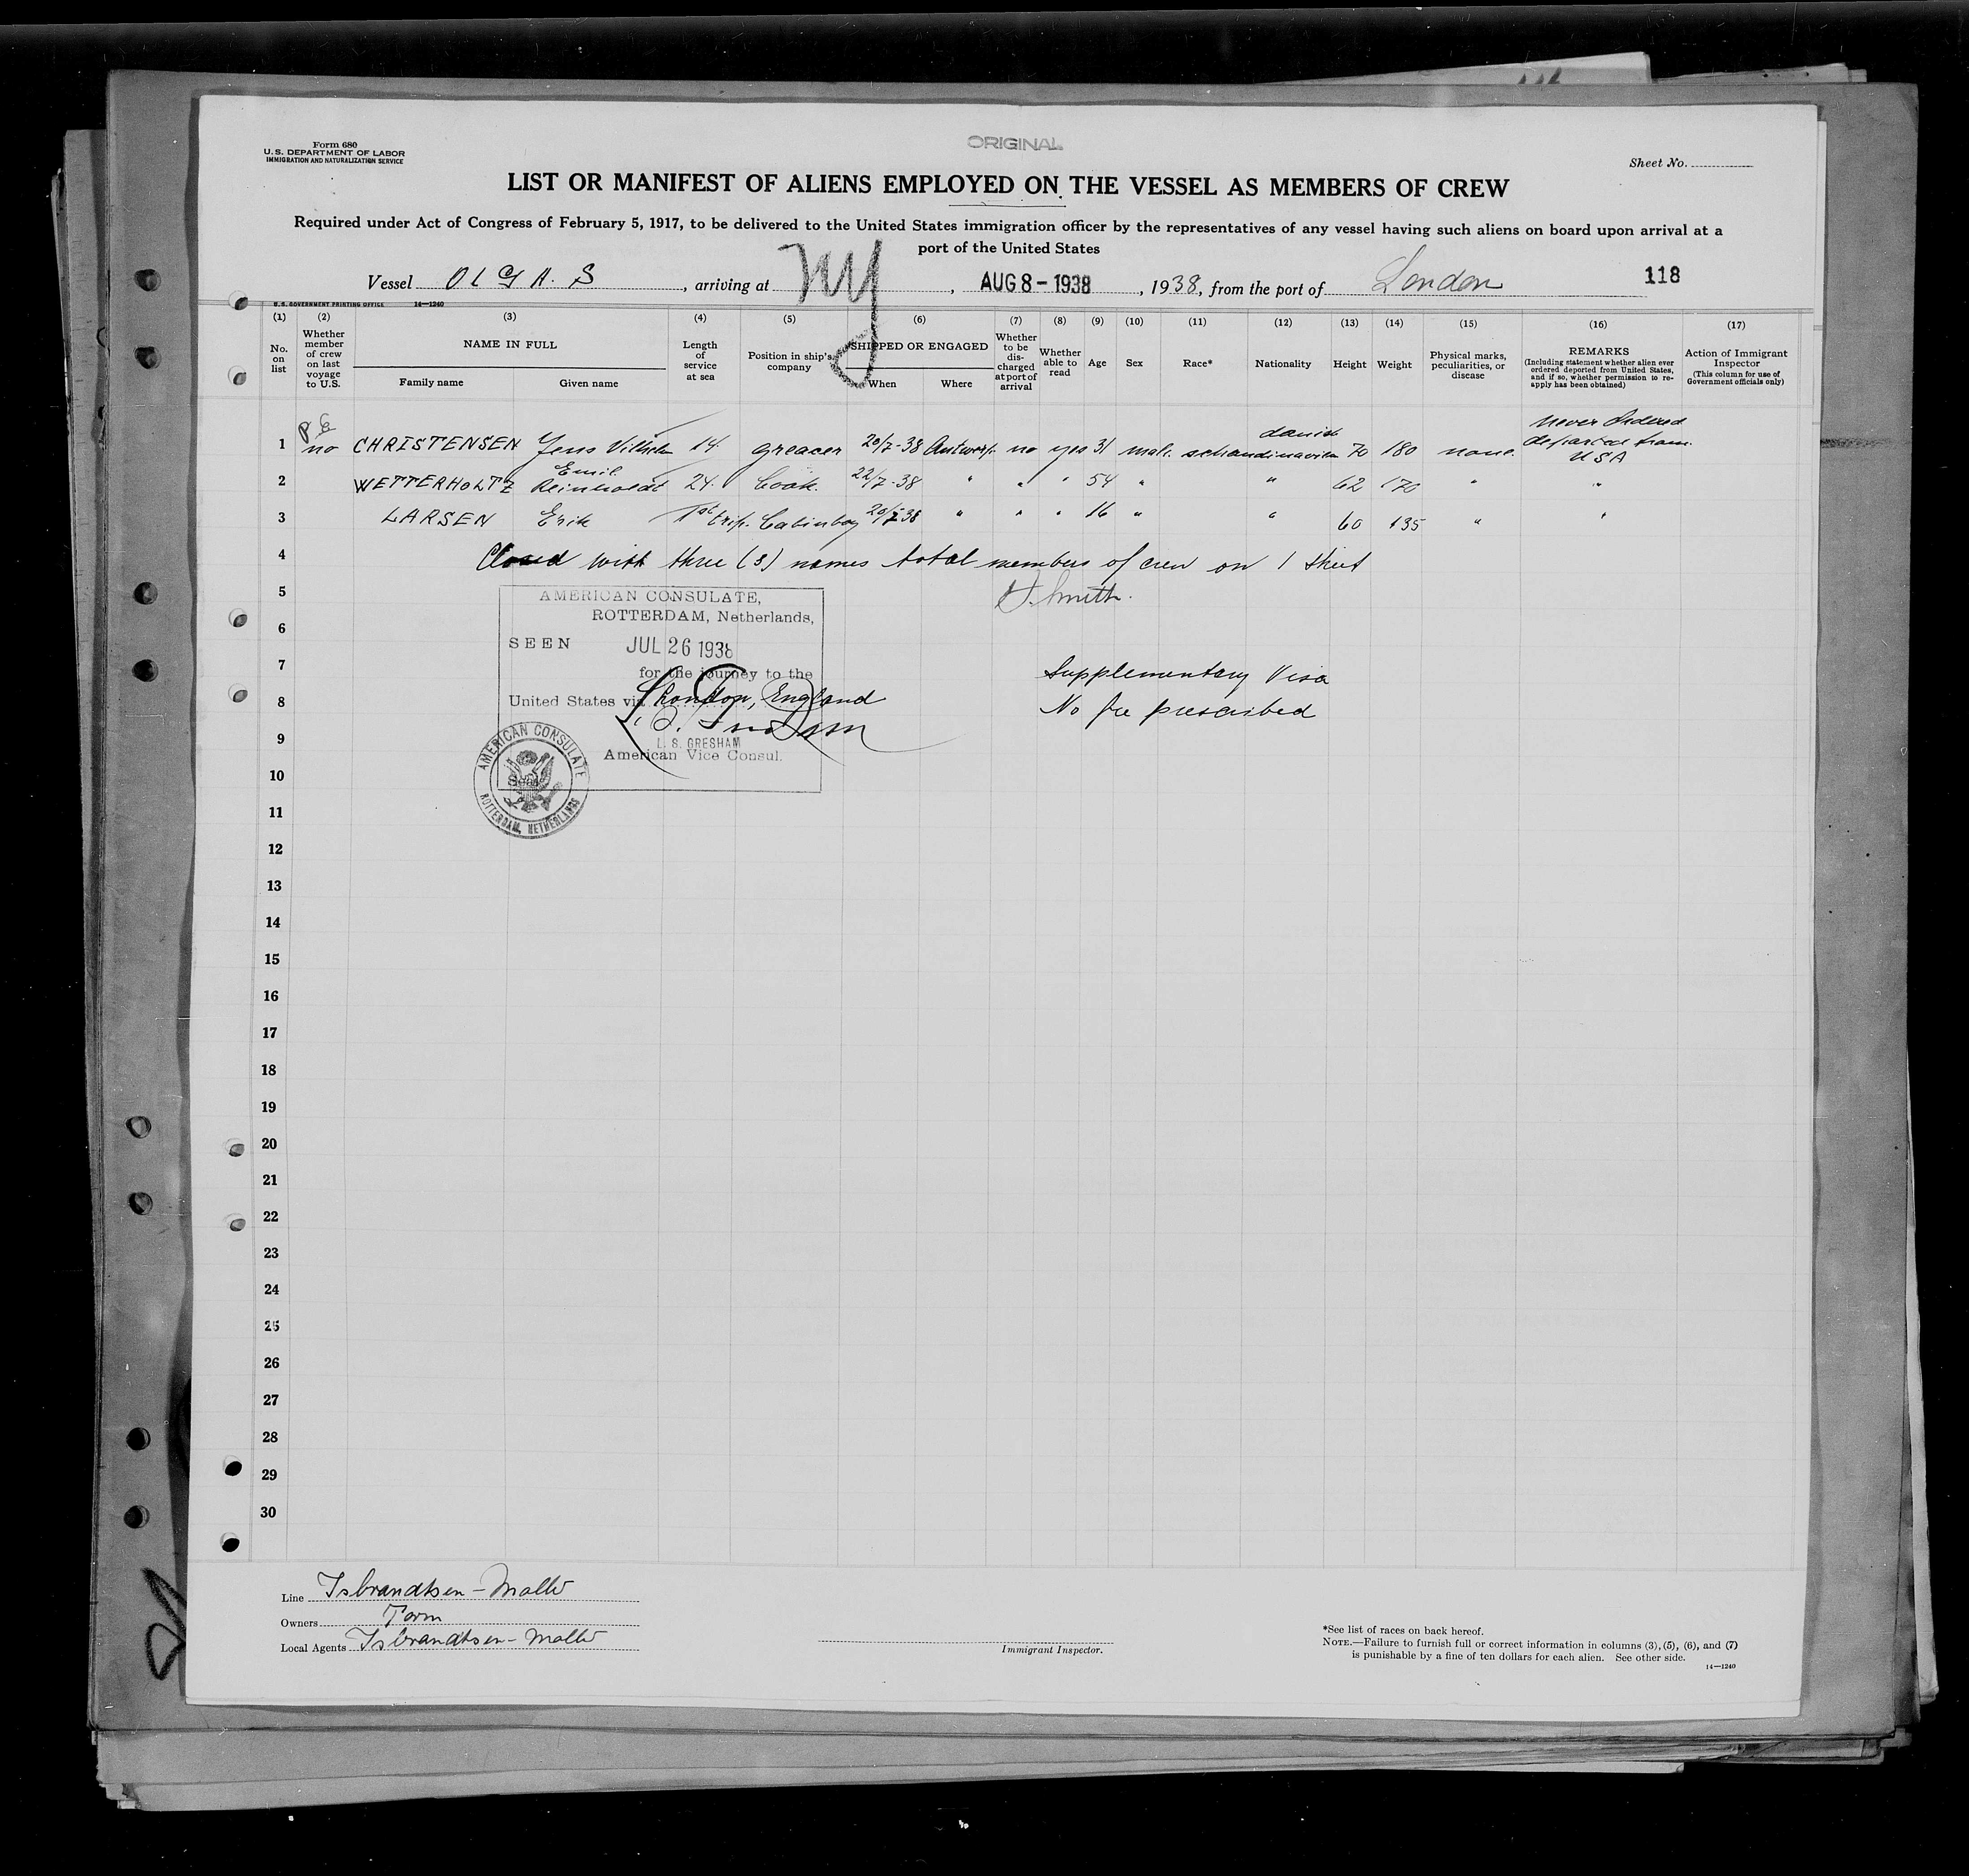 Form 680
U.S. DEPARTMENT OF LABOR
IMMIGRATION AND NATURALIZATION SERVICE
ORIGINAL
Sheet No.
LIST OR MANIFEST OF ALIENS EMPLOYED ON THE VESSEL AS MEMBERS OF CREW
Required under Act of Congress of February 5, 1917, to be delivered to the United States immigration officer by the representatives of any vessel having such aliens on board upon arrival at a
port of the United States
Vessel OLGA. S, arriving at NY, AUG 8 - 1938, 1938, from the port of London 118
U.S. GOVERNMENT PRINTING OFFICE 14—1240
(1) No. on list
(2) Whether member of crew on last voyage to U.S.
(3) NAME IN FULL Family name Given name
(4) Length of service at sea
(5) Position in ship's company
(6) SHIPPED OR ENGAGED When Where
(7) Whether to be discharged at port of arrival
(8) Whether able to read
(9) Age
(10) Sex
(11) Race*
(12) Nationality
(13) Height
(14) Weight
(15) Physical marks, peculiarities, or disease
(16) REMARKS (Including statement whether alien ever ordered deported from United States, and if so, whether permission to reapply has been obtained)
(17) Action of Immigrant Inspector (This column for use of Government officials only)
1 no CHRISTENSEN Jens Vilhelm 14. greacer 20/7-38 Antwerp. no yes 31 male. schandinavien danish 70 180 none. never ordered deported from. USA
2 WETTERHOLTZ Emil Reinholdt 24. Cook. 22/7-38 " " " 54 " " 62 170 " "
3 LARSEN Erik 1st trip. Cabinboy 20/7-38 " " " 16 " " 60 135 " "
4 Closed with three (3) names total members of crew on 1 sheet
5 J. Smith.
AMERICAN CONSULATE,
ROTTERDAM, Netherlands,
6
SEEN JUL 26 1938
7 for the journey to the
Supplementary Visa
8 United States via London, England
No fee prescribed
9
L. S. GRESHAM
American Vice Consul.
10
Seal
AMERICAN CONSULATE
ROTTERDAM, NETHERLANDS
11
12
13
14
15
16
17
18
19
20
21
22
23
24
25
26
27
28
29
30
Line Isbrandtsen - Moller
Owners Torm
Local Agents Isbrandtsen - Moller
Immigrant Inspector.
*See list of races on back hereof.
NOTE.—Failure to furnish full or correct information in columns (3), (5), (6), and (7)
is punishable by a fine of ten dollars for each alien. See other side.
14—1240